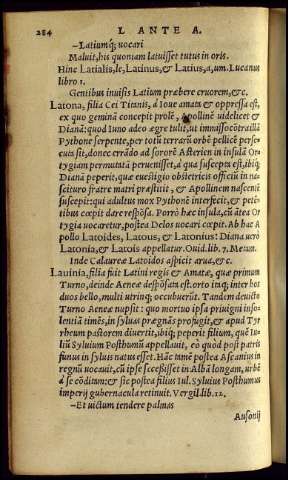 284 L ANTE A.
—Latiumq; uocari
Maluit, his quoniam latuisset tutus in oris.
Hinc Latialis, le, Latinus, & Latius, a, um. Lucanus
libro.1.
Gentibus inuisis Latium præbere cruorem, &c.
Latona, filia Cei Titanis, à Ioue amata & oppressa est,
ex quo geminā concepit prolē, Apollinē uidelicet &
Dianā: quod Iuno adeo ægre tulit, ut immisso cōtra illā
Pythone serpente, per totū terrarū orbē pellicē perse-
cuta sit, donec errādo ad sororē Asterien in insulā Or-
tygiam permutatā peruenisset, à qua suscepta est, ibiq;
Dianā peperit, quæ euestigio obstetricis officiū in na-
scituro fratre matri præstitit, & Apollinem nascenē
suscepit: qui adultus mox Pythonē interfecit, & peti-
tibus cœpit dare respōsa. Porrò hæc insula, cū ātea Or
tygia uocaretur, postea Delos uocari cœpit. Ab hac A
pollo Latoides, Latous, & Latonius: Diana uerò
Latonia, & Latois appellatur. Ouid. lib. 7. Metam.
Inde Calaureæ Latoidos aspicit arua, &c.
Lauinia, filia fuit Latini regis & Amatæ, quæ primum
Turno, deinde Aeneæ despōsata est. orto inq; inter hos
duos bello, multi utrinq; occubuerūt. Tandem deuicto
Turno Aeneæ nupsit: quo mortuo ipsa priuigni inso-
lentiā timēs, in syluas prægnās profugit, & apud Tyr
rheum pastorem diuertit, ibiq; peperit filium, quē Iu-
liū Syluium Posthumū appellauit, eò quòd post patris
funus in syluis natus esset. Hāc tamē postea Ascanius in
regnū uocauit, cū ipse secessisset in Albā longam, urbē
à se cōditam: & sic postea filius Iul. Syluius Posthumus
imperij gubernacula retinuit. Vergil. lib. 12.
—Et uictum tendere palmas
Ausonij